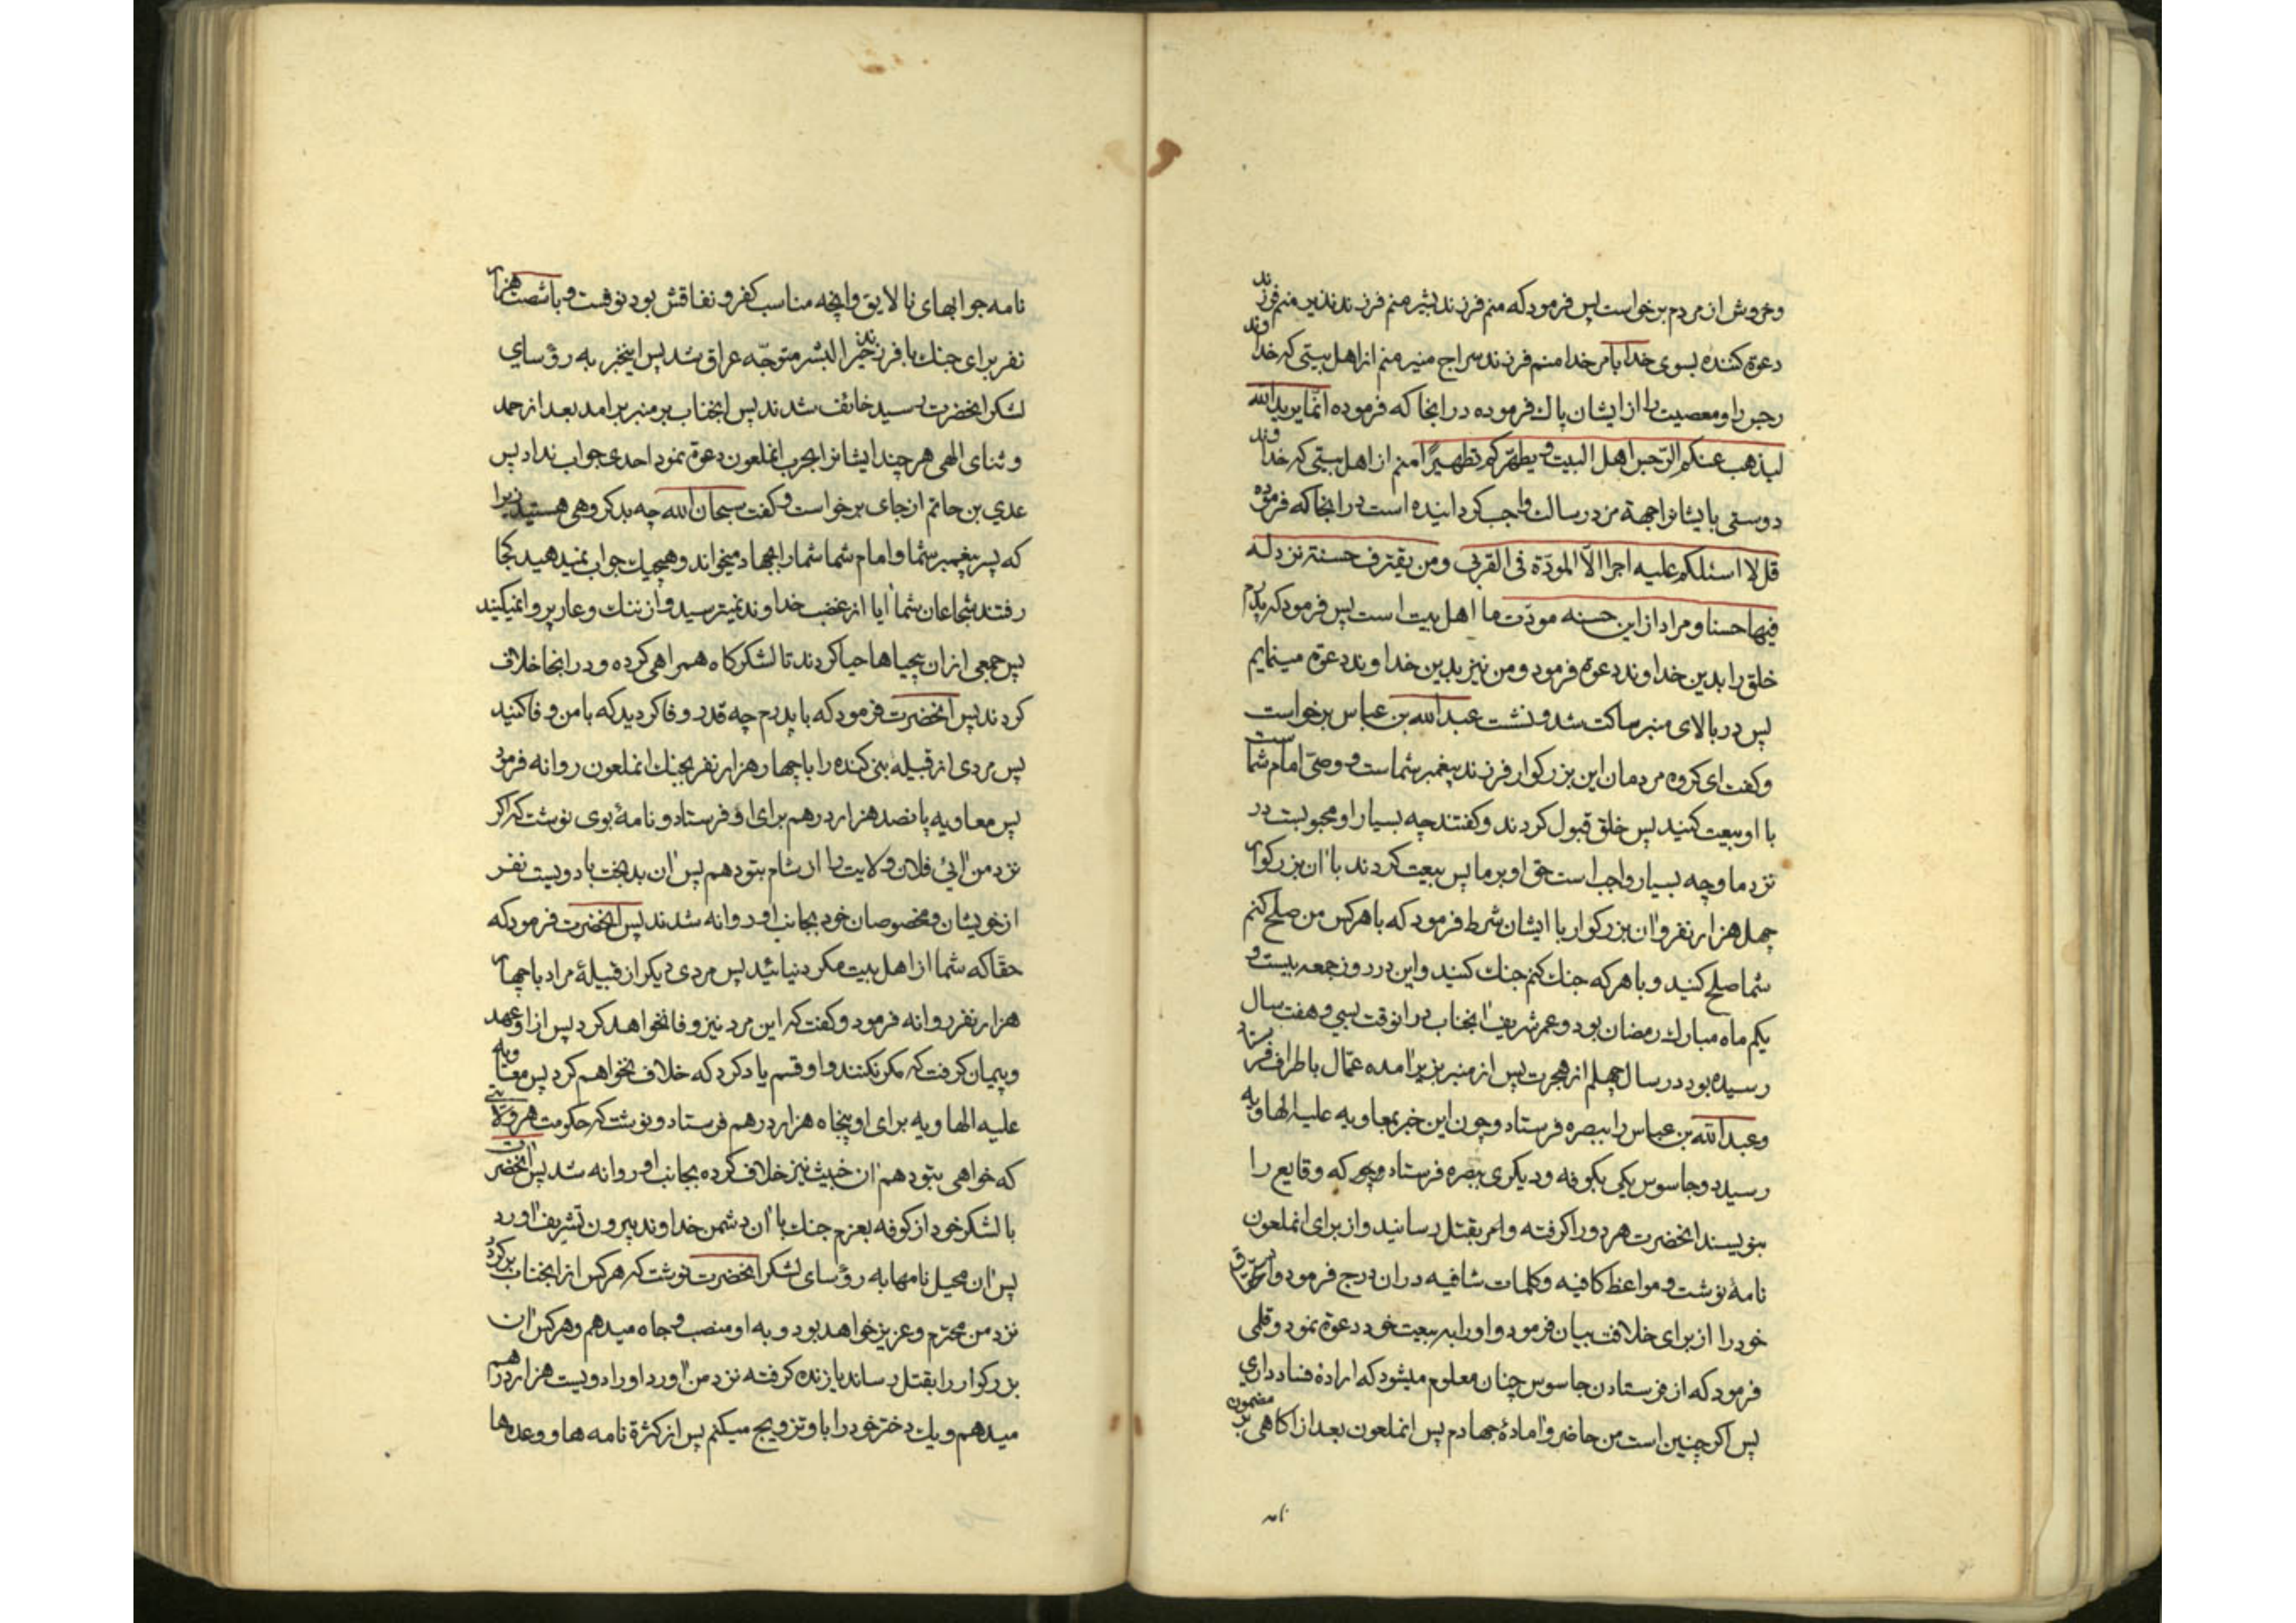 وخروش از مردم برخواست پس فرمود که منم فرزند بشیر منم فرزند نذیر منم فرزند
دعوة کننده بسوی خدا بامر خدا منم فرزند سراج منیر منم از اهل بیتی که خداوند
رجس را و معصیت را از ایشان پاك فرموده در انجا که فرموده انّما یرید الله
لیذهب عنکم الرّجس اهل البیت و یطهّرکم تطهیرًا منم از اهل بیتی که خداوند
دوستی بایشانرا جهة مزد رسالت واجب کردانیده است در انجا که فرموده
قل لا اسئلکم علیه اجرا الّا المودّة فی القربی ومن یقترف حسنة نزد له
فیها حسنا و مراد از این حسنه مودّت ما اهل بیت است پس فرمود که پدرم
خلق را بدین خداوند دعوة فرمود و من نیز بدین خداوند دعوة مینمایم
پس در بالای منبر ساکت شد و نشست عبدالله بن عباس برخواست
و کفت ای کروه مردمان این بزرکوار فرزند پیغمبر شماست و وصیّ امام شماست
با او بیعت کنید پس خلق قبول کردند و کفتند چه بسیار او محبوبست در
نزد ما و چه بسیار واجب است حق او بر ما پس بیعت کردند با ان بزرکوار
چهل هزار نفر و ان بزرکوار با ایشان شرط فرمود که با هر کس من صلح کنم
شما صلح کنید و با هر که جنك کنم جنك کنید و این در روز جمعه بیست و
یکم ماه مبارك رمضان بود و عمر شریف انجناب در انوقت بسی و هفت سال
رسیده بود در سال چهلم از هجرت پس از منبر بزیر امده عمّال باطراف فرستاد
و عبدالله بن عباس را ببصره فرستاد و چون این خبر بمعاویه علیه الهاویه
رسید دو جاسوس یکی بکوفه و دیکری ببصره فرستاد که وقایع را
بنویسند انحضرت هر دو را کرفته و امر بقتل رسانید و از برای انملعون
نامهٔ نوشت و مواعظ کافیه و کلمات شافیه در ان درج فرمود و استحقاق
خود را از برای خلافت بیان فرمود و او را به بیعت خود دعوة نمود و قلمی
فرمود که از فرستادن جاسوس چنان معلوم میشود که ارادهٔ فساد داری
پس اکر چنین است من حاضر و امادهٔ جهادم پس انملعون بعد از اکاهی بر مضمون
نامه
نامه جوابهای نا لایق و انچه مناسب کفر و نفاقش بود نوشت و با شصت هزار
نفر برای جنك با فرزند خیر البشر متوجّه عراق شد پس اینخبر به رؤسای
لشکر انحضرت رسید خائف شدند پس انجناب بر منبر برامد بعد از حمد
و ثنای الهی هر چند ایشانرا بحرب انملعون دعوة نمود احدی جواب نداد پس
عدی بن حاتم از جای برخواست و کفت سبحان الله چه بد کروهی هستید زیرا
که پسر پیغمبر شما و امام شما شما را بجهاد میخواند و هیچیك جواب نمیدهید کجا
رفتند شجاعان شما ایا از غضب خداوند نمیترسید و از ننك و عار پروا نمیکنید
پس جمعی از ان بیحیاها حیا کردند تا لشکرکاه همراهی کرده و در انجا خلاف
کردند پس انحضرت فرمود که با پدرم چه قدر وفا کردید که با من وفا کنید
پس مردی از قبیله بنی کنده را با چهار هزار نفر بجنك انملعون روانه فرمود
پس معاویه پانصد هزار درهم برای او فرستاد و نامهٔ بوی نوشت که اکر
نزد من ائی فلان ولایت را از شام بتو دهم پس ان بدبخت با دویست نفر
از خویشان و مخصوصان خود بجانب او روانه شدند پس انحضرت فرمود که
حقّا که شما از اهل بیت مکر دنیائید پس مردی دیکر از قبیلهٔ مراد با چهار
هزار نفر روانه فرمود و کفت که این مرد نیز وفا نخواهد کرد پس از او عهد
و پیمان کرفت که مکر نکنند و او قسم یاد کرد که خلاف نخواهم کرد پس معاویه
علیه الهاویه برای او پنجاه هزار درهم فرستاد و نوشت که حکومت هر ولایتی
که خواهی بتو دهم ان خبیث نیز خلاف کرده بجانب او روانه شد پس انحضرت
با لشکر خود از کوفه بعزم جنك با ان دشمن خداوند بیرون تشریف اورد
پس ان محیل نامها به رؤسای لشکر انحضرت نوشت که هر کس از انجناب بر کردد
نزد من محترم و عزیز خواهد بود و به او منصب و جاه میدهم و هر کس ان
بزرکوار را بقتل رساند یا زنده کرفته نزد من اورد او را دویست هزار درهم
میدهم و یك دختر خود را باو تزویج میکنم پس از کثرة نامه ها و وعده ها